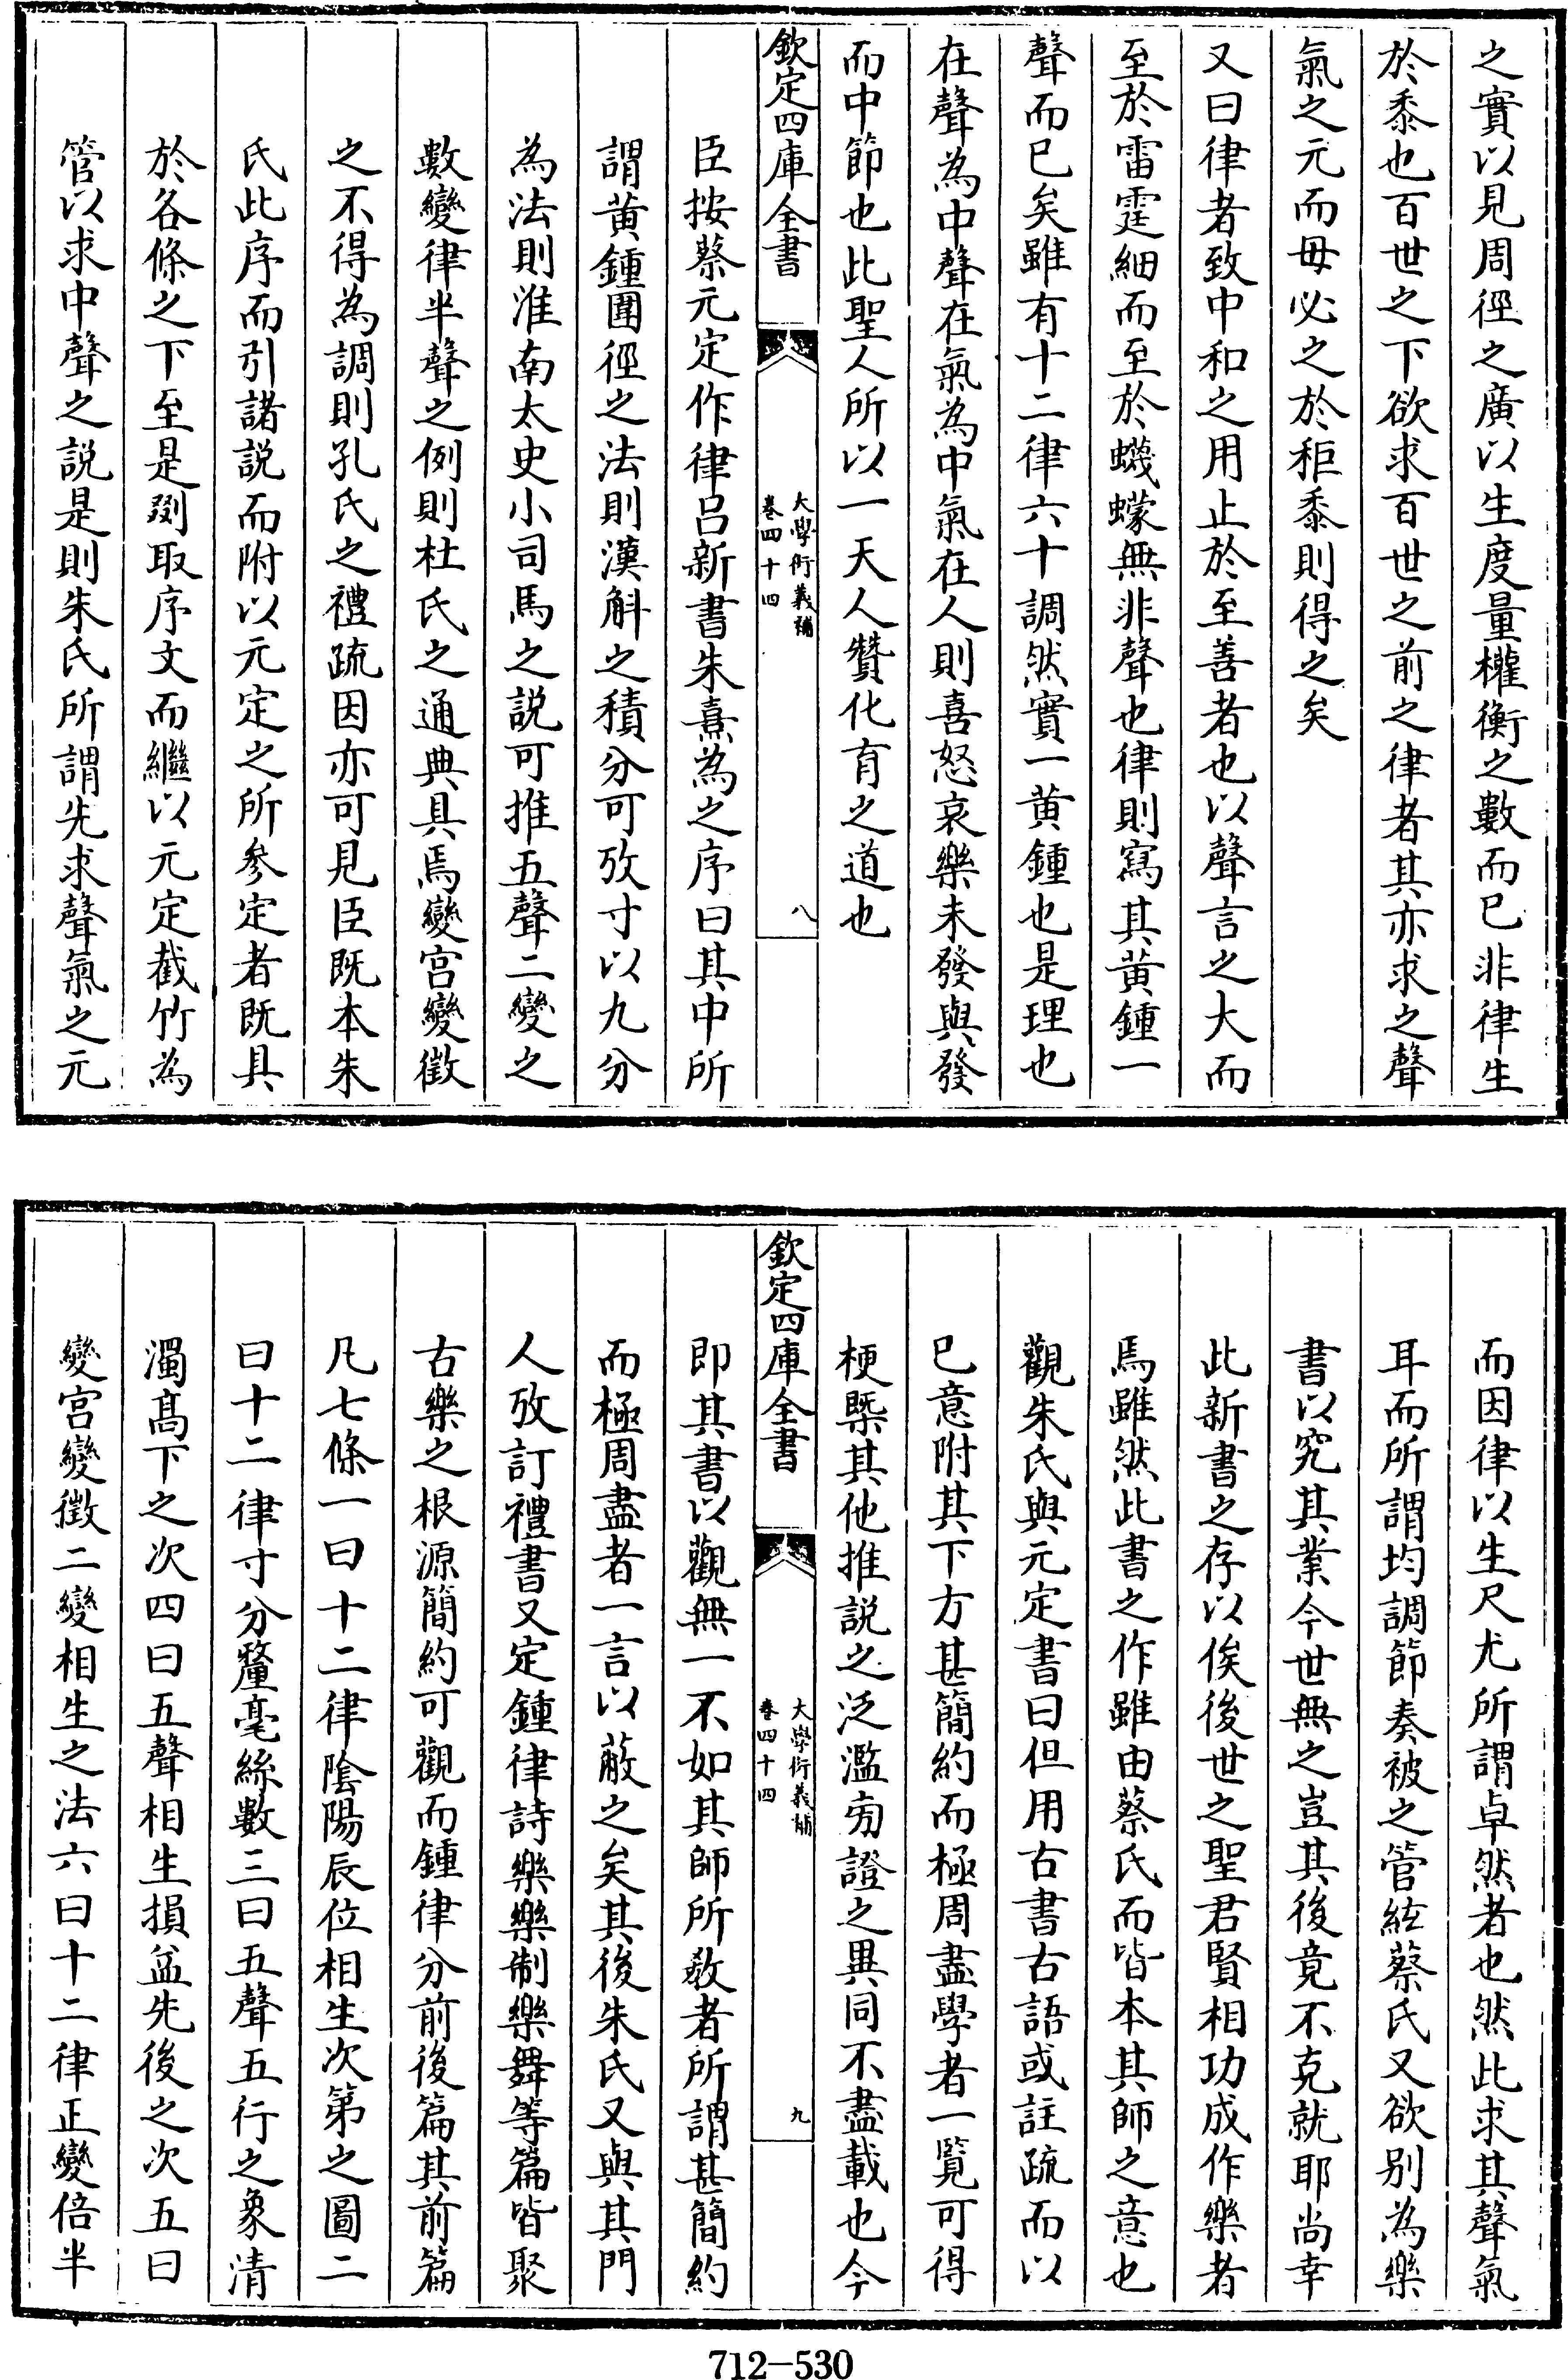 之實以見周徑之廣以生度量權衡之數而已非律生
於黍也百世之下欲求百世之前之律者其亦求之聲
氣之元而毋必之於秬黍則得之矣
又曰律者致中和之用止於至善者也以聲言之大而
至於雷霆細而至於蠛蠓無非聲也律則寫其黃鍾一
聲而已矣雖有十二律六十調然實一黃鍾也是理也
在聲為中聲在氣為中氣在人則喜怒哀樂未發與發
而中節也此聖人所以一天人贊化育之道也
欽定四庫全書
大學衍義補
卷四十四
八
臣按蔡元定作律呂新書朱熹為之序曰其中所
謂黃鍾圍徑之法則漢斛之積分可攷寸以九分
為法則淮南太史小司馬之說可推五聲二變之
數變律半聲之例則杜氏之通典具焉變宮變徵
之不得為調則孔氏之禮疏因亦可見臣既本朱
氏此序而引諸說而附以元定之所參定者既具
於各條之下至是剟取序文而繼以元定截竹為
管以求中聲之說是則朱氏所謂先求聲氣之元
而因律以生尺尤所謂卓然者也然此求其聲氣
耳而所謂均調節奏被之管絃蔡氏又欲别為樂
書以究其業今世無之豈其後竟不克就耶尚幸
此新書之存以俟後世之聖君賢相功成作樂者
焉雖然此書之作雖由蔡氏而皆本其師之意也
觀朱氏與元定書曰但用古書古語或註疏而以
已意附其下方甚簡約而極周盡學者一覧可得
梗槩其他推說之泛濫旁證之異同不盡載也今
欽定四庫全書
大學衍義補
卷四十四
九
即其書以觀無一不如其師所敎者所謂甚簡約
而極周盡者一言以蔽之矣其後朱氏又與其門
人攷訂禮書又定鍾律詩樂樂制樂舞等篇皆聚
古樂之根源簡約可觀而鍾律分前後篇其前篇
凡七條一曰十二律隂陽辰位相生次第之圖二
曰十二律寸分釐毫絲數三曰五聲五行之象清
濁髙下之次四曰五聲相生損益先後之次五曰
變宮變徵二變相生之法六曰十二律正變倍半
712-530